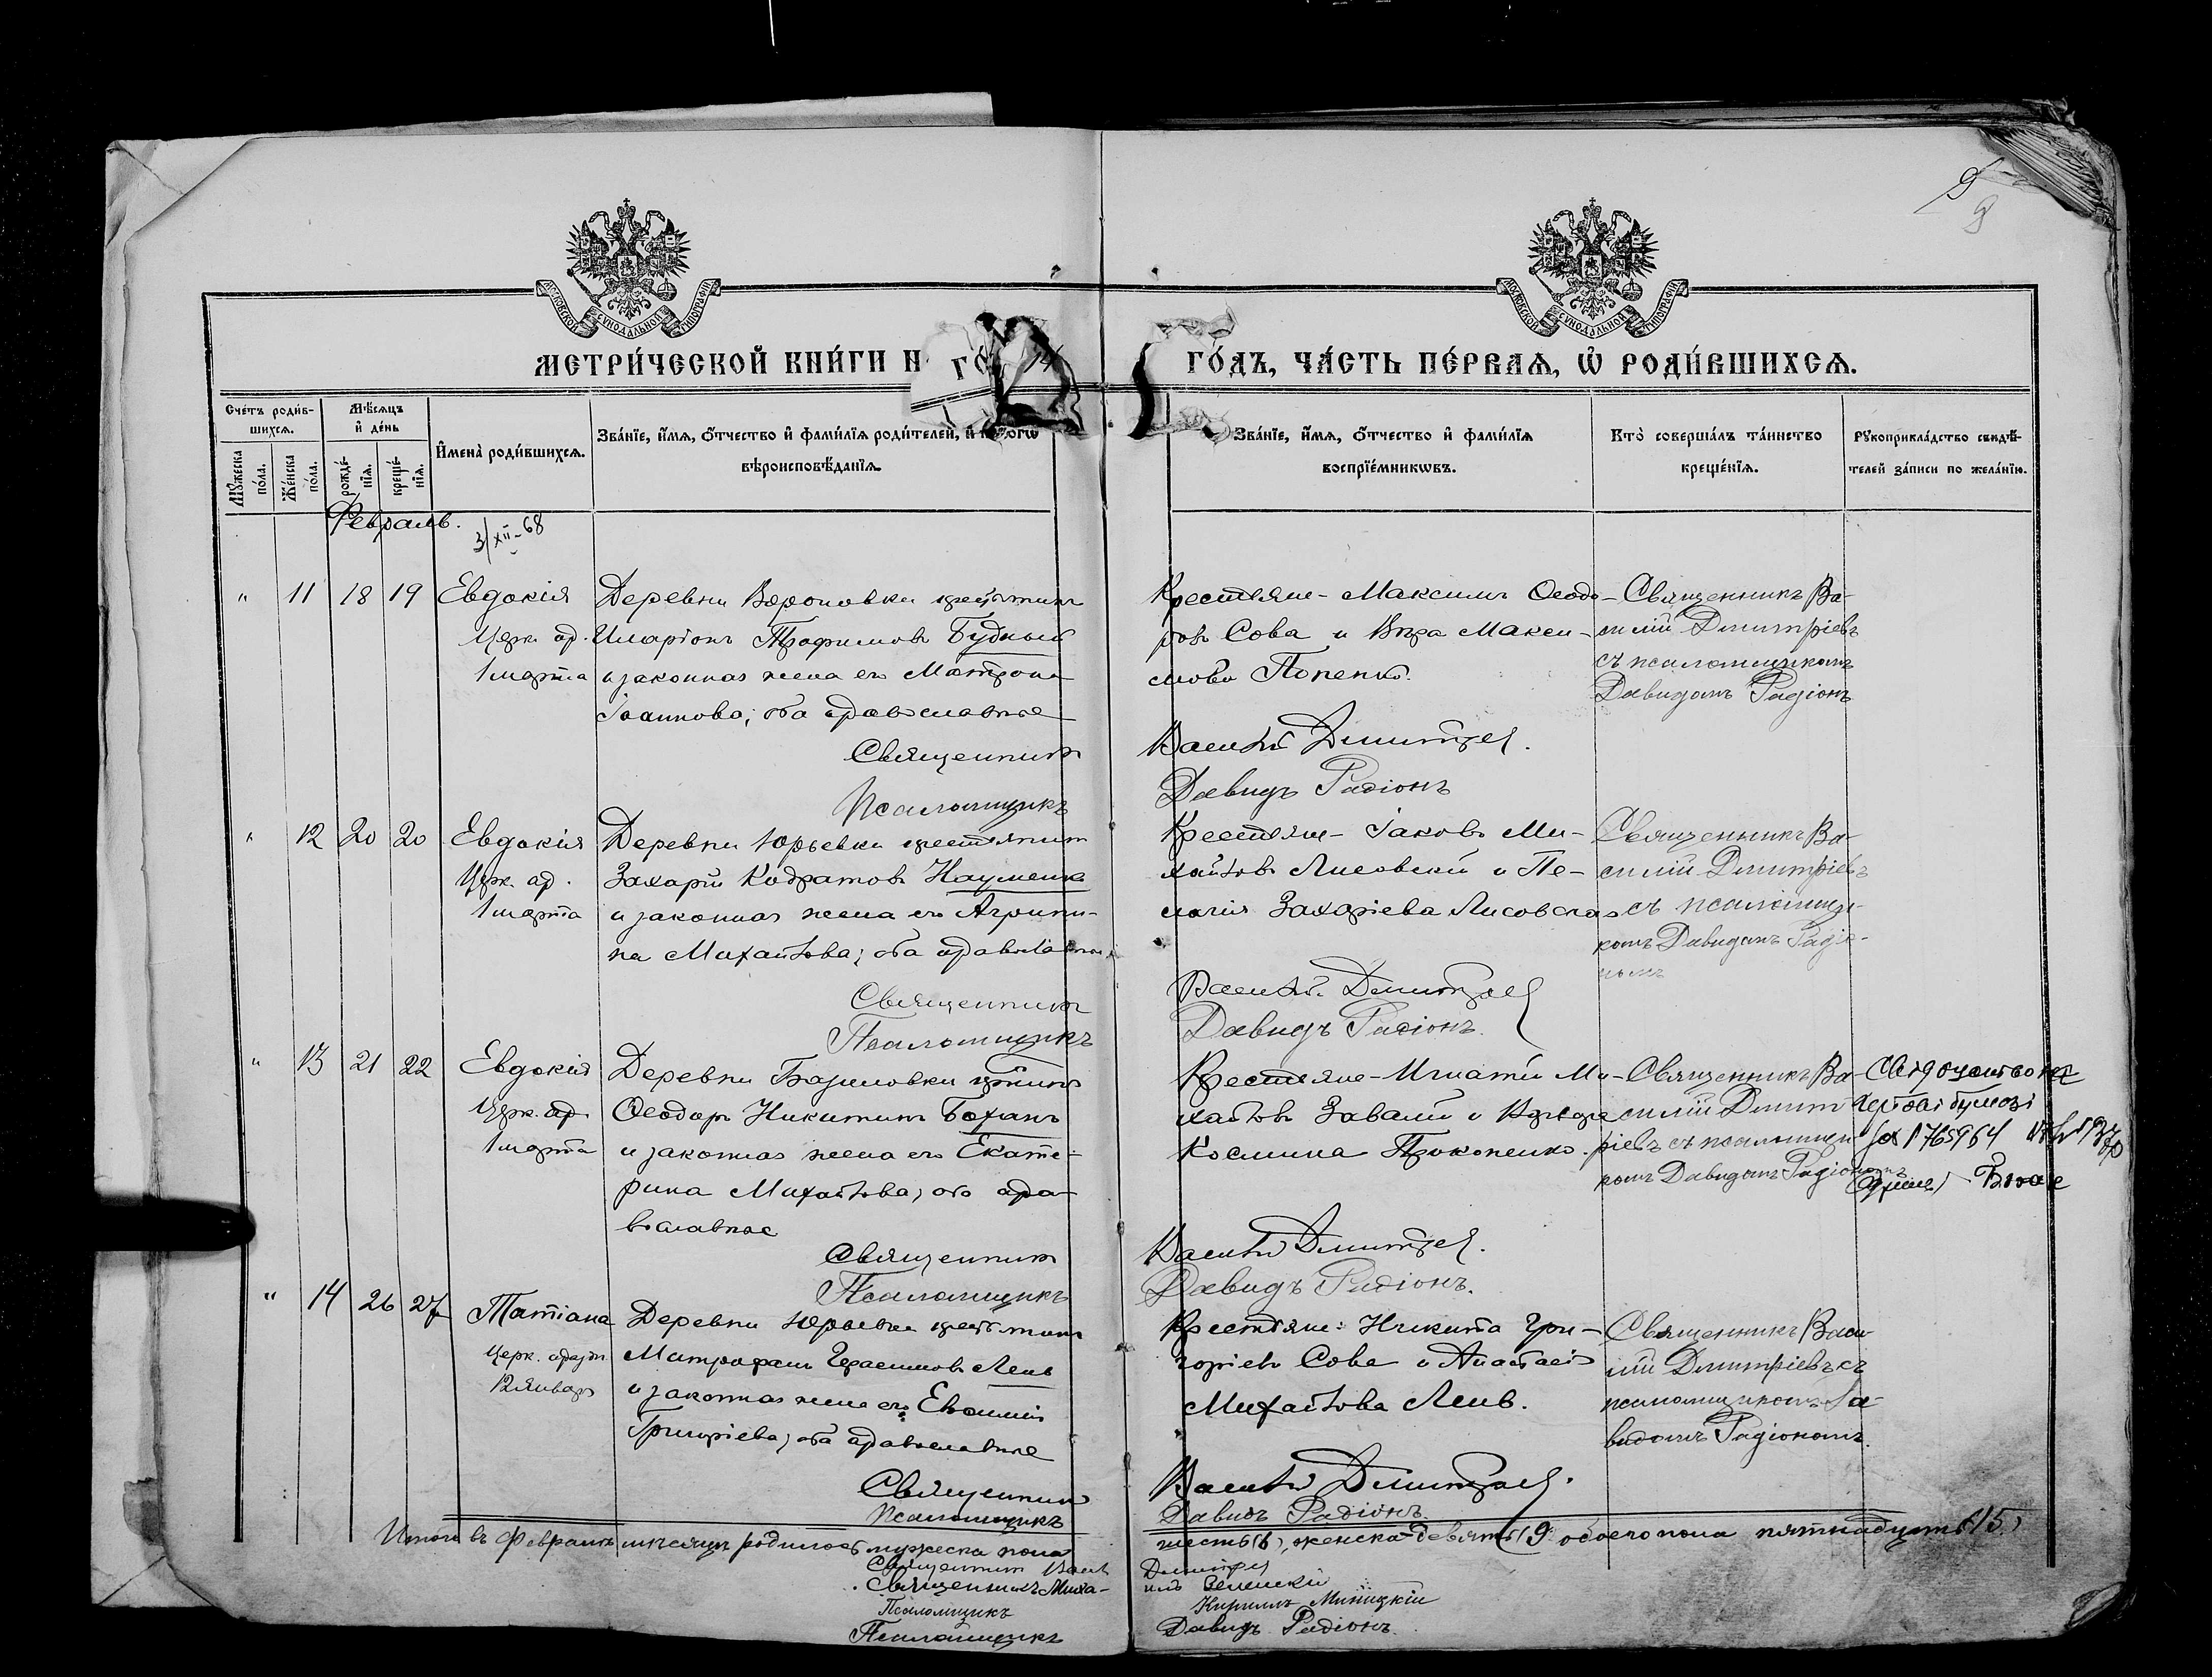 9
9
МОСКОВСКОЙ СУНОДАЛЬНОЙ ТИПОГРАФІИ
МОСКОВСКОЙ СУНОДАЛЬНОЙ ТИПОГРАФІИ
МЕТРИ́ЧЕСКОЙ КНИ́ГИ Н ГО 14
ГО́ДЪ, ЧА́СТЬ ПЕ́РВАѦ, Ѡ҆ РОДИ́ВШИХСѦ.
Сче́тъ роди́в-
шихсѧ.
Мѣ́сѧцъ
и҆ де́нь
Мꙋ́жеска
по́ла.
Же́нска
по́ла.
рожде́-
нїѧ.
креще́-
нїѧ.
И҆мена̀ роди́вшихсѧ.
Зва́нїе, и҆́мѧ, ѻ҆́тчество и҆ фами́лїѧ роди́телей, и҆
вѣроисповѣ́данїѧ.
Зва́нїе, и҆́мѧ, ѻ҆́тчество и҆ фами́лїѧ
воспрїе́мникѡвъ.
Кто̀ соверша́лъ та́инство
креще́нїѧ.
Рꙋкоприкла́дство свидѣ́-
телей за́писи по жела́нїю.
Февраль.
3/XII-68
" 11 18 19 Евдокія
Церк. ар.
1 марта
Деревни Вороновки крестьянинъ
Иларіонъ Трофимовъ Будный
и законная жена его Матрона
Іоаннова; оба православные
Священникъ
Псаломщикъ
Крестьяне - Максимъ Ѳеодо-
ровъ Сова и Вѣра Макси-
мова Попенко.
Василій Димитріев.
Давидъ Радіонъ
Священникъ Ва-
силій Димитріевъ
съ псаломщикомъ
Давидомъ Радіонъ
" 12 20 20 Евдокія
Церк. ар.
1 марта
Деревни Юрьевки крестьянинъ
Захарій Кодратовъ Науменко
и законная жена его Агрипи-
на Михайлова; оба православные
Священникъ
Псаломщикъ
Крестьяне - Іаковъ Ми-
хайловъ Лисовскій и Пе-
лагія Захаріева Лисовская
Василій Димитріев
Давидъ Радіонъ.
Священникъ Ва-
силій Димитріевъ
съ псаломщи-
комъ Давидомъ Радіо-
номъ
" 13 21 22 Евдокія
Церк. ар.
1 марта
Деревни
Ѳеодоръ Никитинъ Боханъ
и законная жена его Екате-
рина Михайлова; оба пра-
вославные
Священникъ
Псаломщикъ
Крестьяне - Игнатій Ми-
хайловъ Завалій и
Космина Прокопенко.
Василій Димитріев.
Давидъ Радіонъ.
Священникъ Ва-
силій Димит
ріевъ съ псаломщи
комъ Давидомъ Радіономъ
1765964
" 14 26 27 Татіана
Церк.
12 января
Деревни Юрьевки крестьянинъ
Митрофанъ Герасимовъ Лень
и законная жена его Евфимія
Григоріева; оба православные
Священникъ
Псаломщикъ
Крестьяне: Никита Гри-
горіевъ Сова и Анастасія
Михайлова Лень.
Василій Димитріев.
Давидъ Радіонъ.
Священникъ Васи
лій Димитріевъ съ
псаломщикомъ Да-
видомъ Радіономъ.
Итого въ Февралѣ мѣсяцѣ родилось мужеска пола
шесть (6), женска девять (9 обоего пола пятнадцать (15)
Священникъ Васил
Димитріев
Священникъ Миха-
илъ Зеленскій
Псаломщикъ
Кириллъ Миницкій
Псаломщикъ
Давидъ Радіонъ.